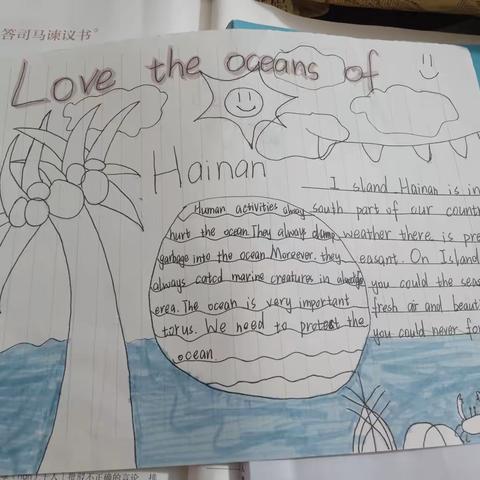 答司马谏议书
Love the oceans of
Hainan
Human activities alway
hurt the ocean. They always dump
garbage into the ocean. Moreover, they
always catcd marine creatures in
erea. The ocean is very important
torus. We need to protect the
ocean
Island Hainan is in
south part of our countr
weather there is pre
easant. On Island
you could the seas
fresh air and beauti
you could never for